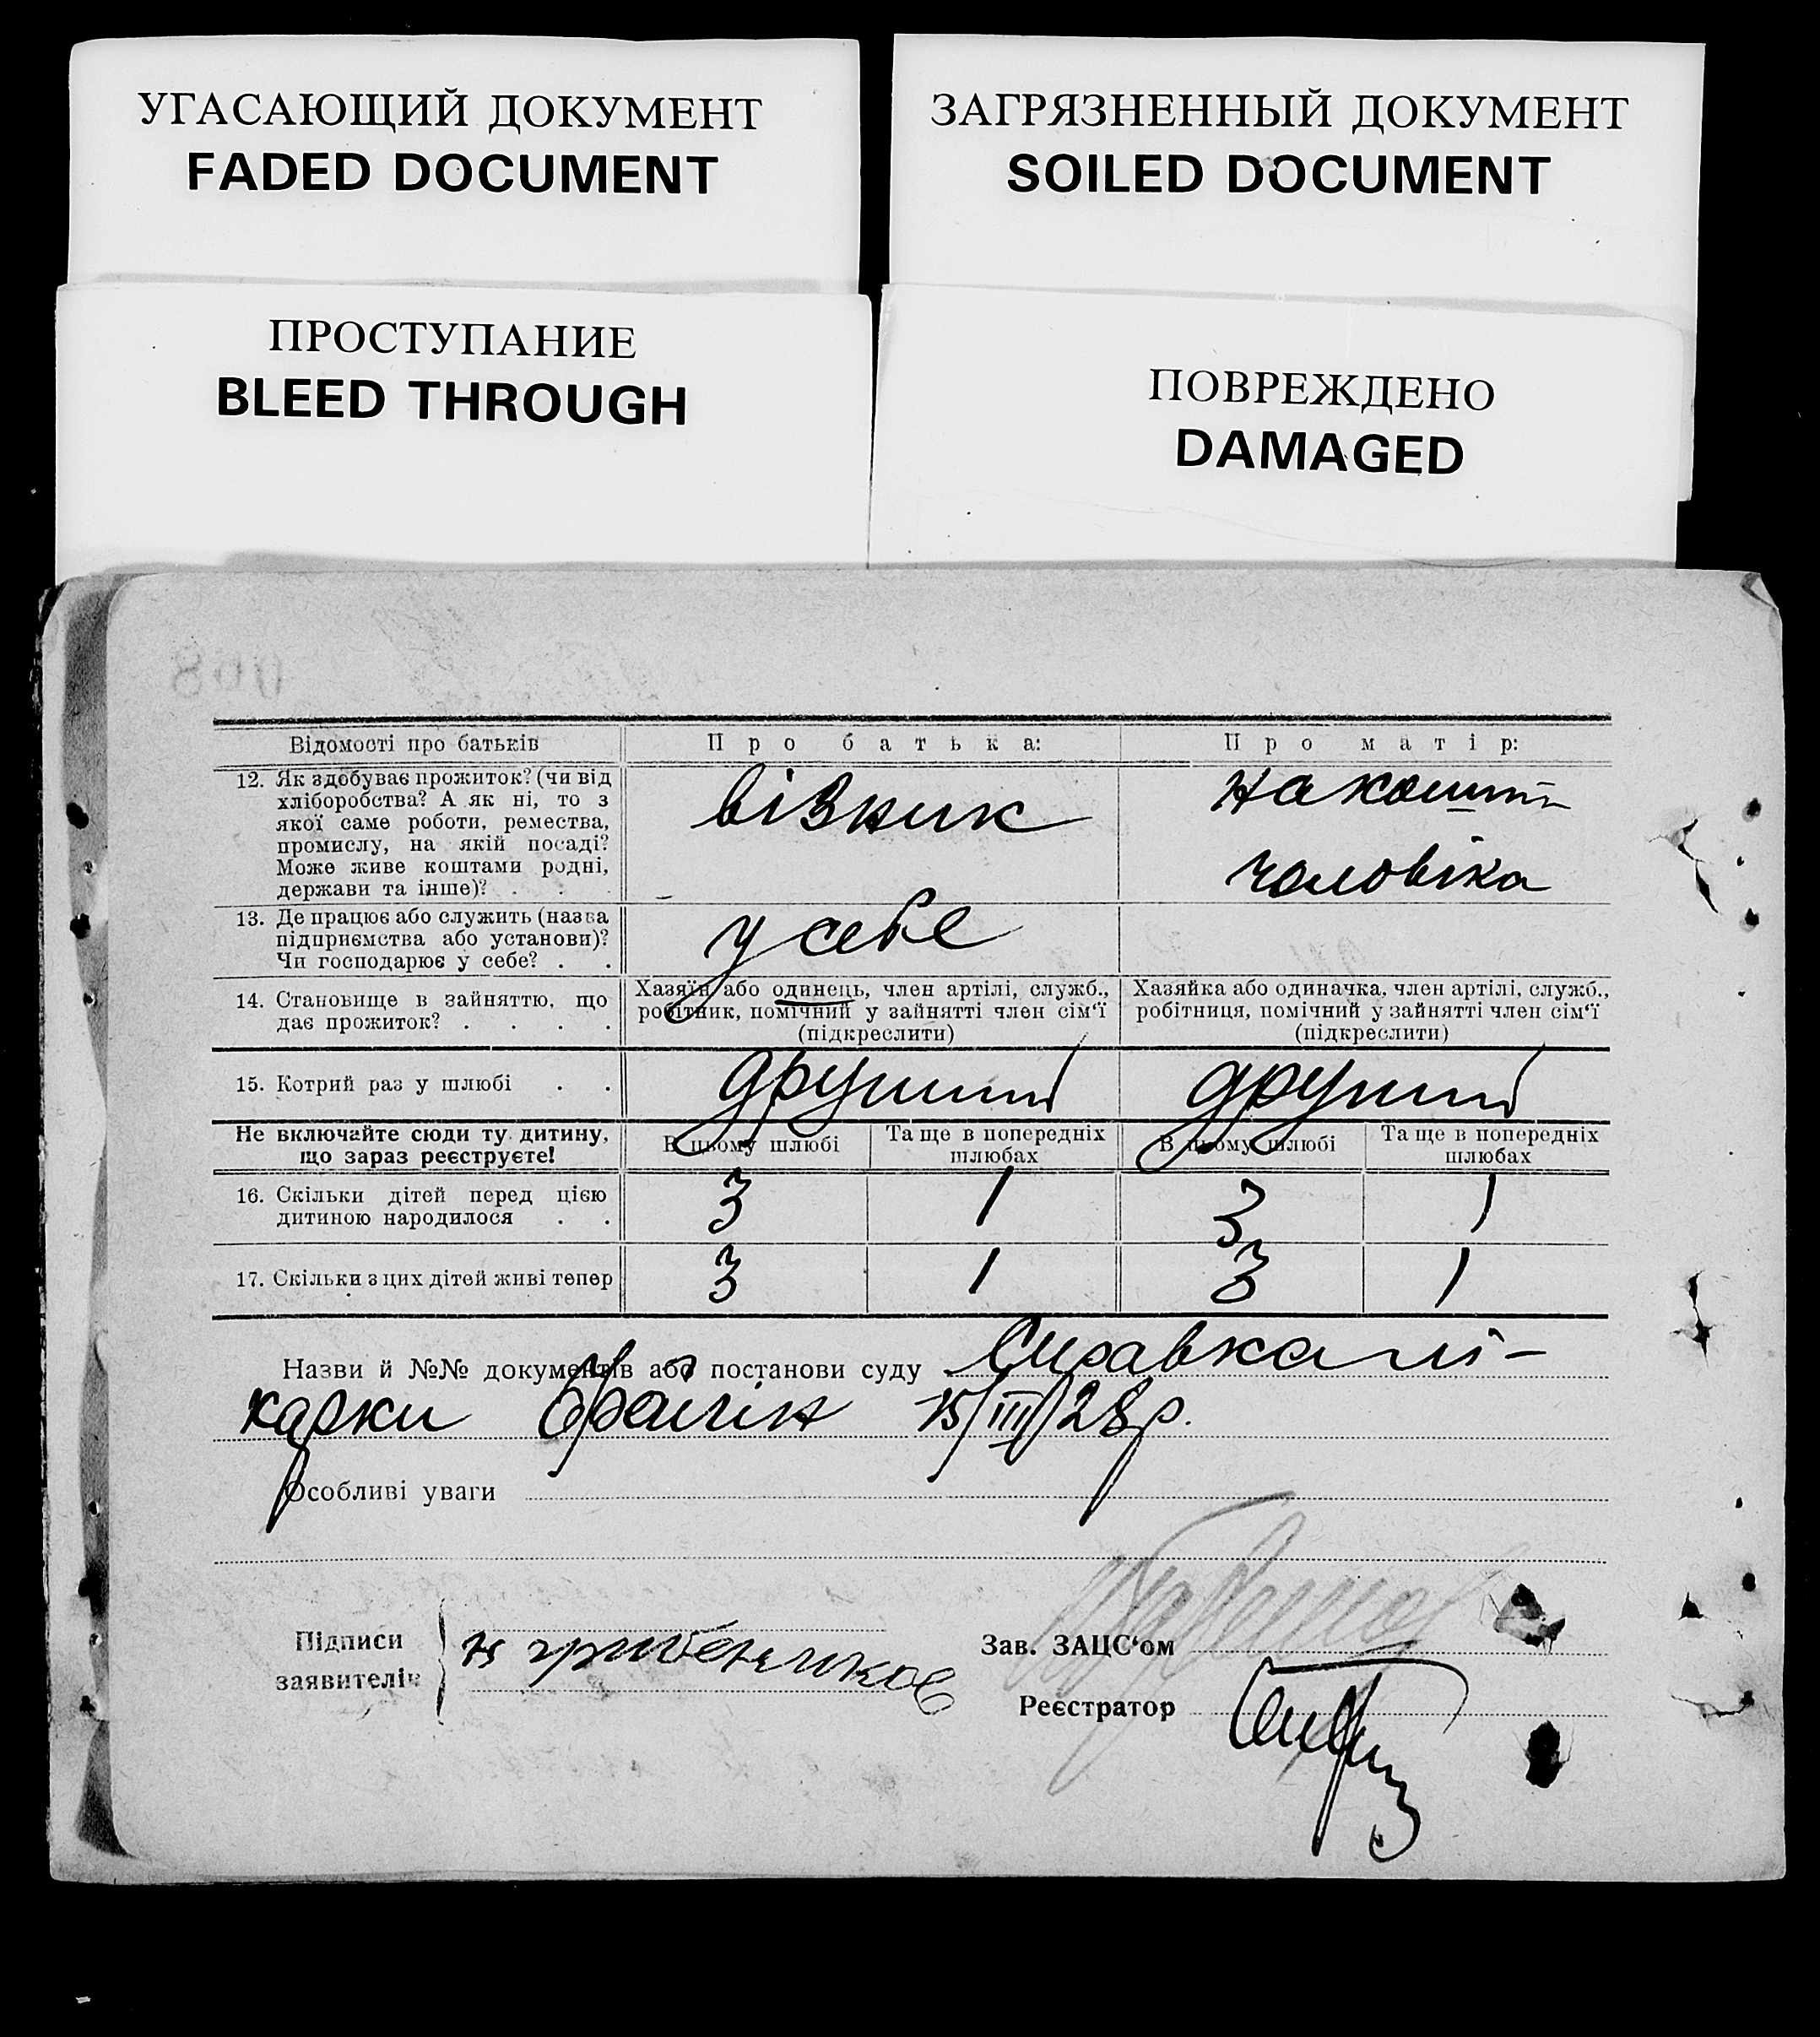 УГАСАЮЩИЙ ДОКУМЕНТ
FADED DOCUMENT
ЗАГРЯЗНЕННЫЙ ДОКУМЕНТ
SOILED DOCUMENT
ПРОСТУПАНИЕ
BLEED THROUGH
ПОВРЕЖДЕНО
DAMAGED
Відомості про батьків
Про батька:
Про матір:
12. Як здобуває прожиток? (чи від
хліборобства? А як ні, то з
якої саме роботи, ремества,
промислу, на якій посаді?
Може живе коштами родні,
держави та інше)? . . .
візник
на кошти
чоловіка
13. Де працює або служить (назва
підприємства або установи)?
Чи господарює у себе? . .
у себе
14. Становище в зайняттю, що
дає прожиток? . . . .
Хазяїн або одинець, член артілі, служб.,
робітник, помічний у зайнятті член сім'ї
(підкреслити)
Хазяйка або одиначка, член артілі, служб.,
робітниця, помічний у зайнятті член сім'ї
(підкреслити)
15. Котрий раз у шлюбі . .
другий
другий
Не включайте сюди ту дитину,
що зараз реєструєте!
В цьому шлюбі
Та ще в попередніх
шлюбах
В цьому шлюбі
Та ще в попередніх
шлюбах
16. Скільки дітей перед цією
дитиною народилося . .
3
1
3
1
17. Скільки з цих дітей живі тепер
3
1
3
1
Назви й №№ документів або постанови суду Справка лі-
карки 15/III 28 р.
Особливі уваги
Підписи
заявителів
Зав. ЗАЦС'ом
Реєстратор